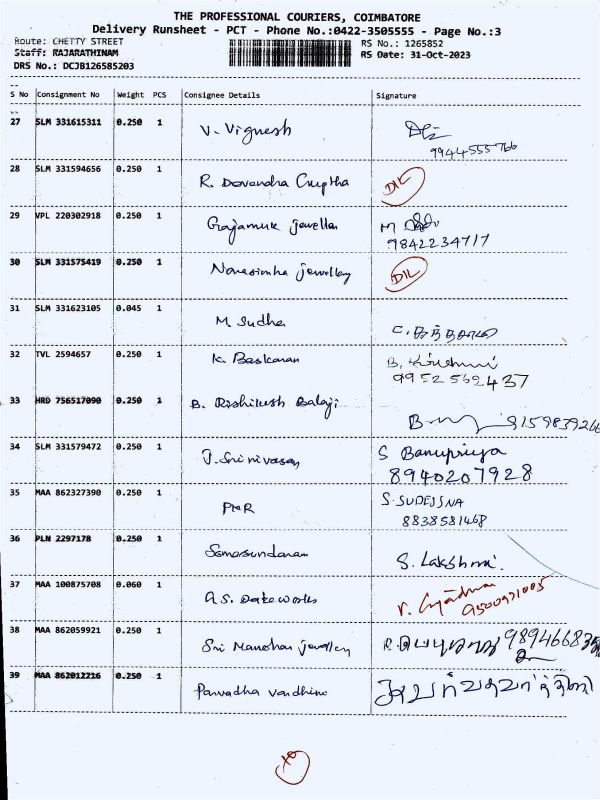 THE PROFESSIONAL COURIERS, COIMBATORE
Delivery Runsheet - PCT - Phone No.:0422-3505555 - Page No.:3
Route: CHETTY STREET RS No.: 1265852
Staff: RAJARATHINAM RS Date: 31-Oct-2023
DRS No.: DCJB126585203
S No Consignment No Weight PCS Consignee Details Signature
27 SLM 331615311 0.250 1 V. Vignesh
9944555766
28 SLM 331594656 0.250 1 R. Devendra Guptha DIL
29 VPL 220302918 0.250 1 Gajamuk jewellar M
9842234717
30 SLM 331575419 0.250 1 Narasimha jewellery DIL
31 SLM 331623105 0.045 1 M. Sudha
32 TVL 2594657 0.250 1 K. Baskaran B.
9952562437
33 HRD 756517090 0.250 1 B. Rishikesh Balaji
34 SLM 331579472 0.250 1 J. Srinivasan S Banupriya
8940207928
35 MAA 862327390 0.250 1 PMR S. SUDESSNA
8838581468
36 PLN 2297178 0.250 1 Somasundaram S. Lakshmi
37 MAA 100875708 0.060 1 A.S. Dateworks V.
9500971005
38 MAA 862059921 0.250 1 Sri Manohar jewellery R.
39 MAA 862012216 0.250 1 Parvadha vardhini